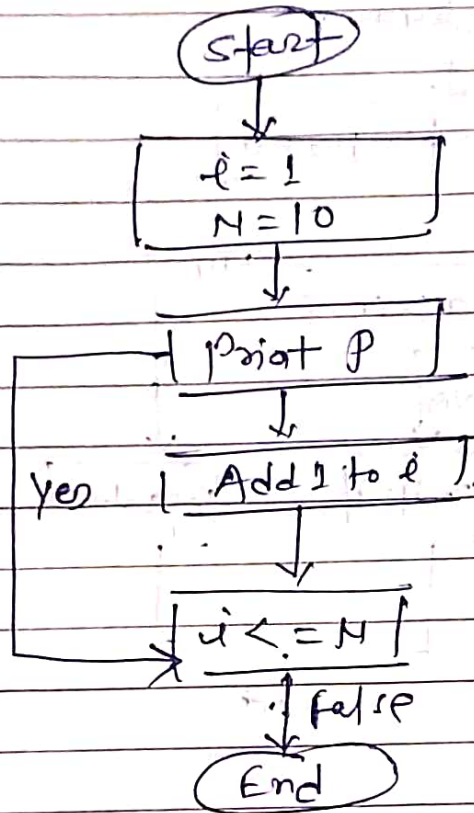 Start
i = 1
N = 10
Print P
Add 1 to i
Yes
i <= N
false
End